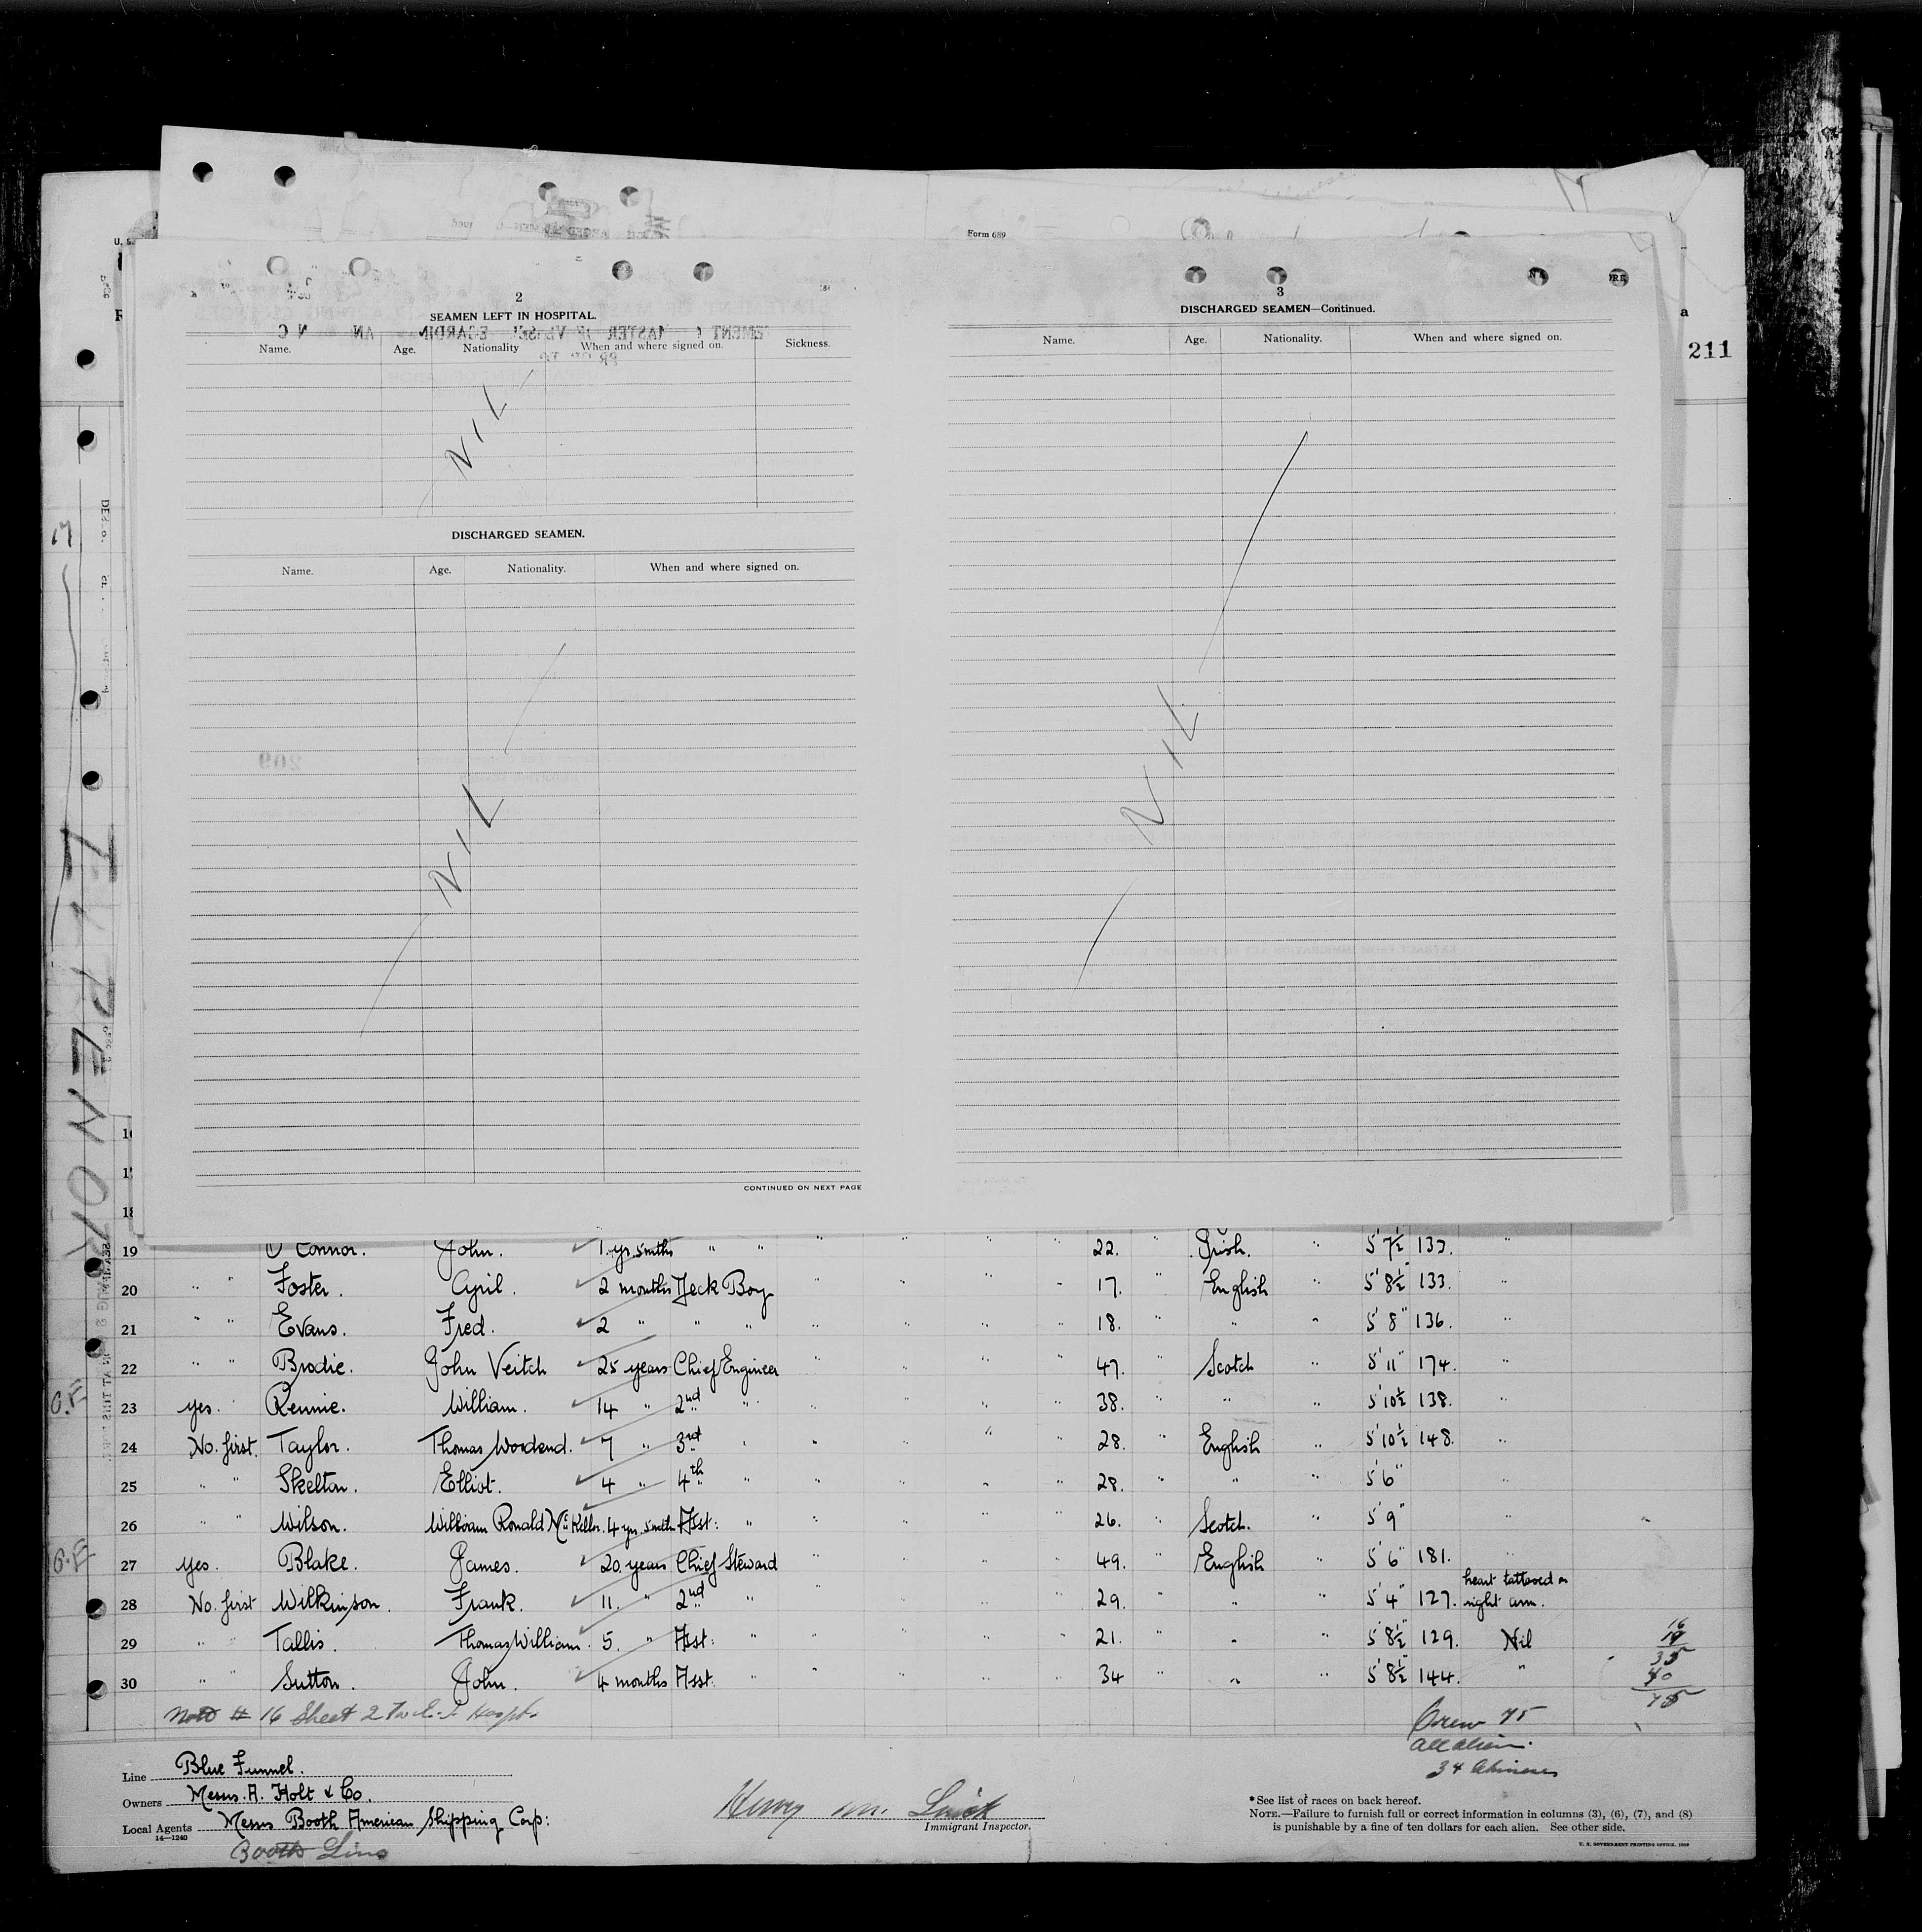 Form 689
2
SEAMEN LEFT IN HOSPITAL.
Name. Age. Nationality When and where signed on. Sickness.
NIL
DISCHARGED SEAMEN.
Name. Age. Nationality. When and where signed on.
NIL
CONTINUED ON NEXT PAGE
3
DISCHARGED SEAMEN—Continued.
Name. Age. Nationality. When and where signed on.
NIL
211
17
19 O'Connor. John. 1 yr. 5 mths " " " " " " 22. " Irish. " 5' 7½ 133. "
20 " " Foster. Cyril. 2 months Deck Boy " " " " 17. " English " 5' 8½" 133. "
21 " " Evans. Fred. 2 " " " " " " " 18. " " " 5' 8" 136. "
22 " " Brodie. John Veitch 25 years Chief Engineer " " " " 47. " Scotch " 5' 11" 174. "
23 yes. Rennie. William. 14 " 2nd " " " " " 38. " " " 5' 10½ 138. "
24 No. first. Taylor. Thomas Woodend. 7 " 3rd " " " " " 28. " English " 5' 10½ 148. "
25 " " Skelton. Elliot. 4 " 4th " " " " " 28. " " " 5' 6" "
26 " " Wilson. William Ronald 4 yrs. 5 mths Asst: " " " " " 26. " Scotch. " 5' 9" "
27 yes. Blake. James. 20 years Chief Steward " " " " 49. " English " 5' 6" 181. "
28 No. first Wilkinson. Frank. 11. " 2nd " " " " " 29. " " " 5' 4" 127. heart tattooed on right arm.
29 " " Tallis. Thomas William. 5. " Asst: " " " " " 21. " " " 5' 8½" 129. Nil
30 " " Sutton. John. 4 months Asst. " " " " " 34 " " " 5' 8½" 144. "
16
19
35
40
75
16 Sheet 2
Crew 75
all alien.
34 Chinese
Line Blue Funnel.
Owners Messrs. A. Holt & Co.
Local Agents Messrs Booth American Shipping Corp:
14—1240
Booth Line
Henry m.
Immigrant Inspector.
*See list of races on back hereof.
NOTE.—Failure to furnish full or correct information in columns (3), (6), (7), and (8)
is punishable by a fine of ten dollars for each alien. See other side.
U. S. GOVERNMENT PRINTING OFFICE. 1920